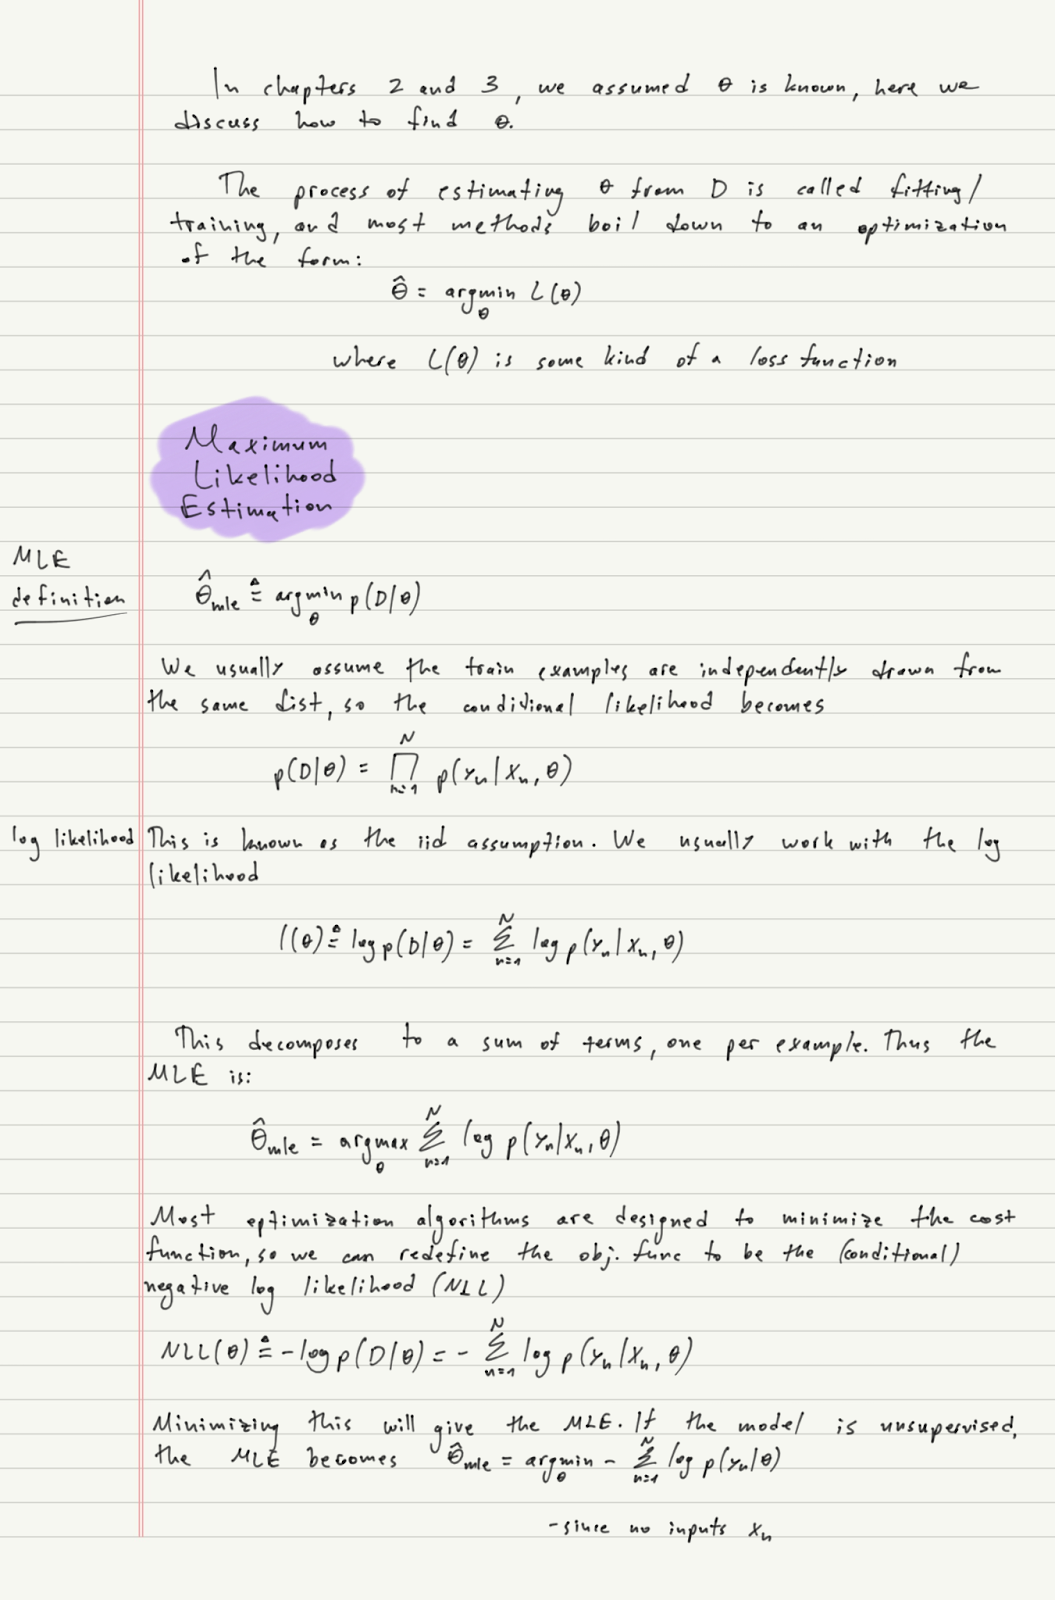 In chapters 2 and 3, we assumed θ is known, here we
discuss how to find θ.
The process of estimating θ from D is called fitting/
training, and most methods boil down to an optimization
of the form:
θ̂ = argmin_θ L(θ)
where L(θ) is some kind of a loss function
Maximum
Likelihood
Estimation
MLE
definition
θ̂_mle ≜ argmin_θ p(D|θ)
We usually assume the train examples are independently drawn from
the same dist, so the conditional likelihood becomes
p(D|θ) = ∏_{n=1}^N p(y_n|x_n, θ)
log likelihood
This is known as the iid assumption. We usually work with the log
likelihood
l(θ) ≜ log p(D|θ) = ∑_{n=1}^N log p(y_n|x_n, θ)
This decomposes to a sum of terms, one per example. Thus the
MLE is:
θ̂_mle = argmax_θ ∑_{n=1}^N log p(y_n|x_n, θ)
Most optimization algorithms are designed to minimize the cost
function, so we can redefine the obj. func to be the (conditional)
negative log likelihood (NLL)
NLL(θ) ≜ -log p(D|θ) = - ∑_{n=1}^N log p(y_n|x_n, θ)
Minimizing this will give the MLE. If the model is unsupervised,
the MLE becomes θ̂_mle = argmin_θ - ∑_{n=1}^N log p(y_n|θ)
- since no inputs x_n